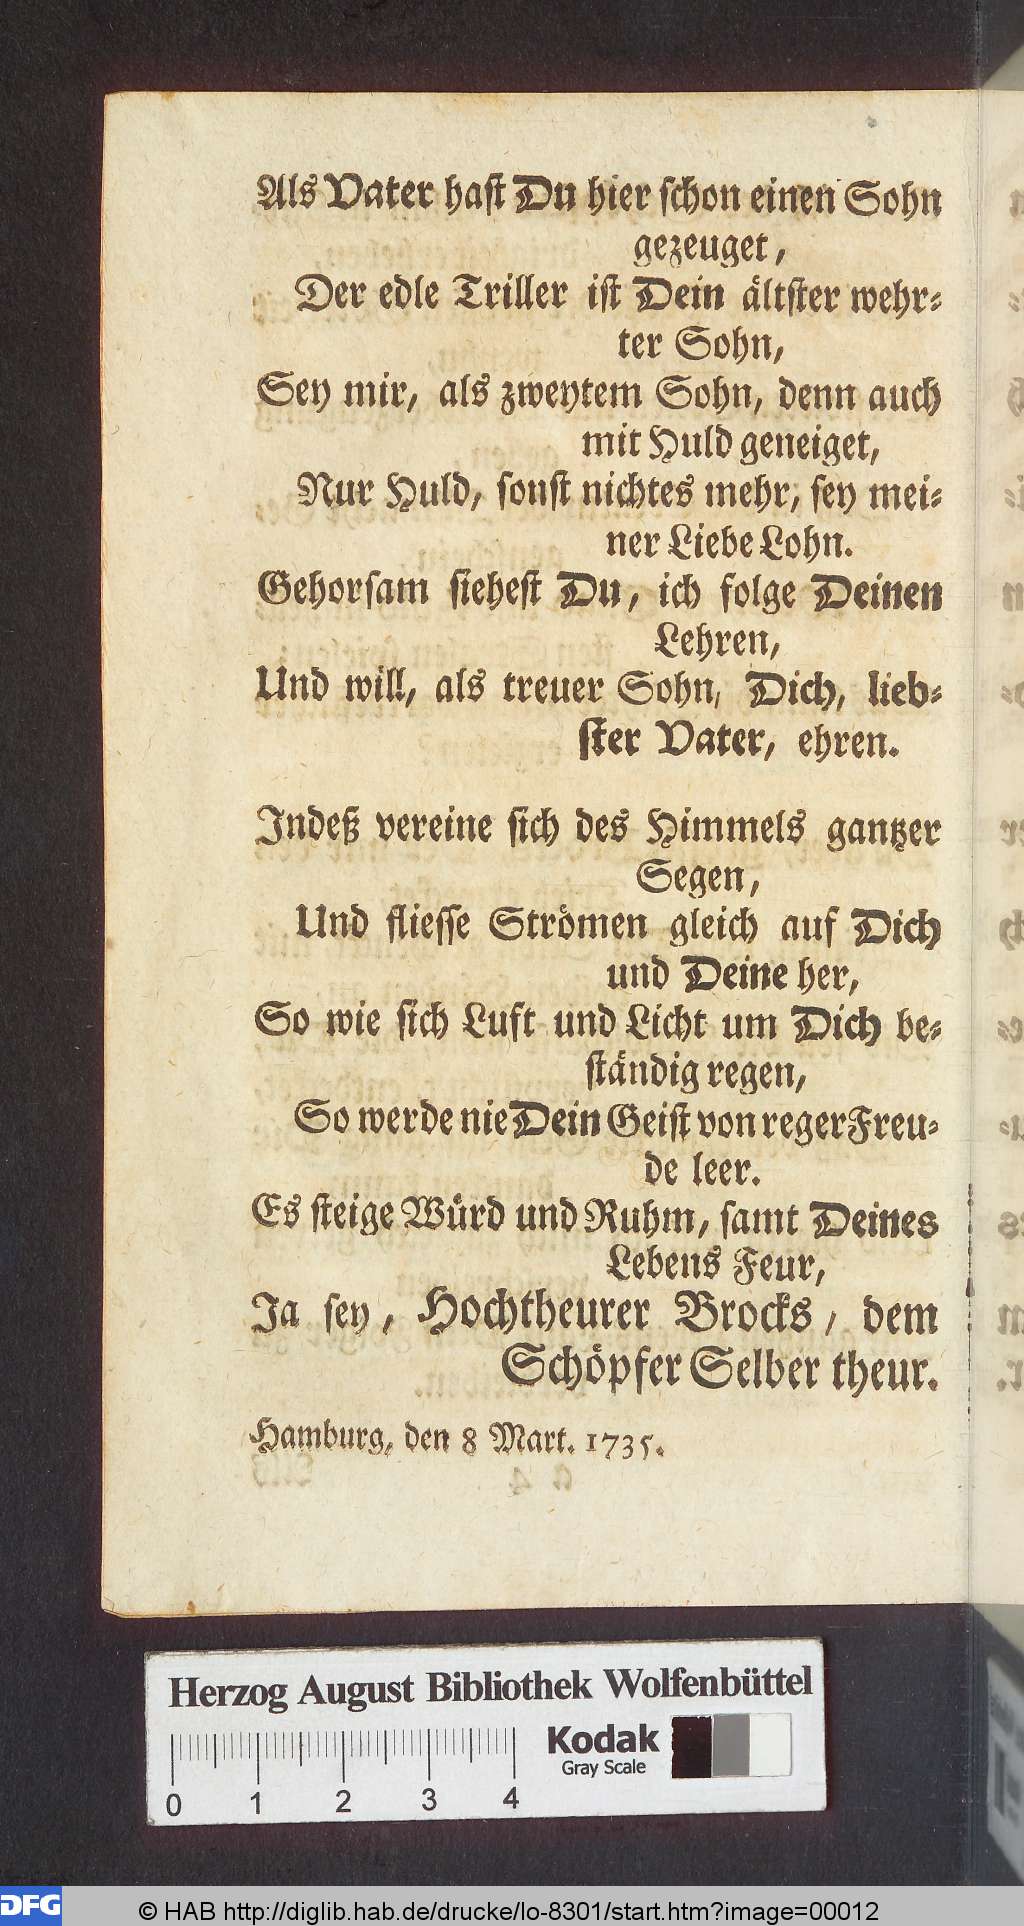 Als Vater hast Du hier schon einen Sohn
gezeuget,
Der edle Triller ist Dein ältster wehr-
ter Sohn,
Sey mir, als zweytem Sohn, denn auch
mit Huld geneiget,
Nur Huld, sonst nichtes mehr, sey mei-
ner Liebe Lohn.
Gehorsam siehest Du, ich folge Deinen
Lehren,
Und will, als treuer Sohn, Dich, lieb-
ster Vater, ehren.
Indeß vereine sich des Himmels gantzer
Segen,
Und fliesse Strömen gleich auf Dich
und Deine her,
So wie sich Luft und Licht um Dich be-
ständig regen,
So werde nie Dein Geist von reger Freu-
de leer.
Es steige Würd und Ruhm, samt Deines
Lebens Feur,
Ja sey, Hochtheurer Brocks, dem
Schöpfer Selber theur.
Hamburg, den 8 Mart. 1735.
Herzog August Bibliothek Wolfenbüttel
Kodak
Gray Scale
0 1 2 3 4
DFG
© HAB http://diglib.hab.de/drucke/lo-8301/start.htm?image=00012